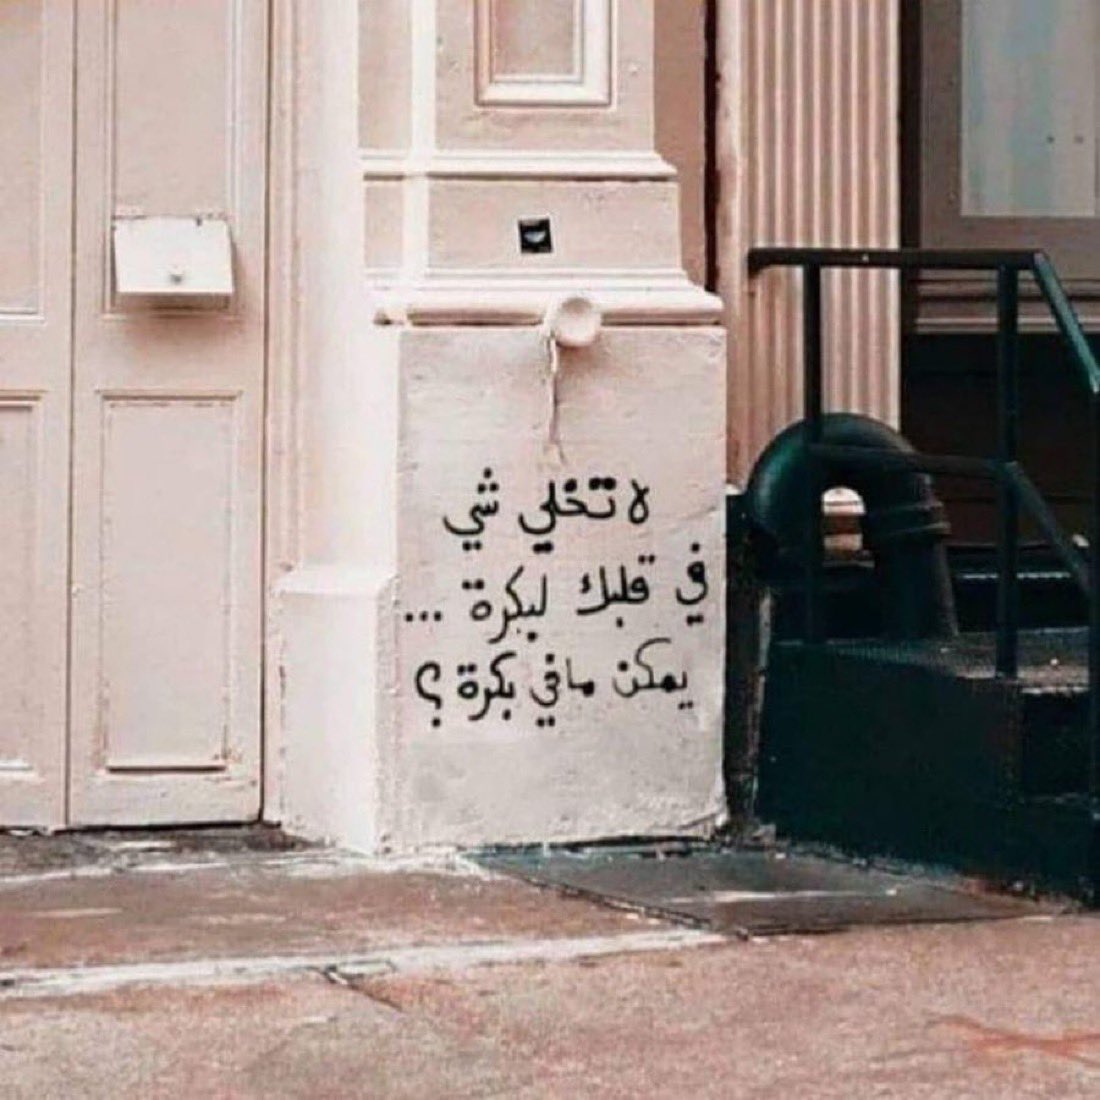 لا تخلي شي
في قلبك لبكرة ...
يمكن مافي بكرة ؟